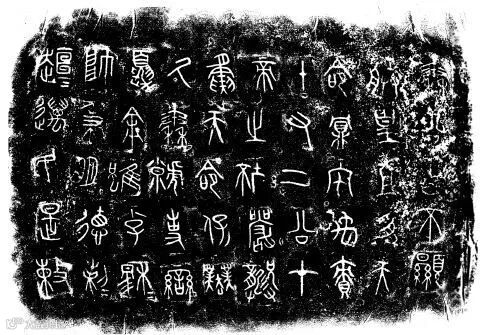 秦公曰不顯
朕皇且受天
命鼏宅禹責
十又二公才
帝之坏嚴龏
夤天命保業
厥秦虩事蠻
夏余雖小子穆
帥秉明德剌
趄邁民是敕